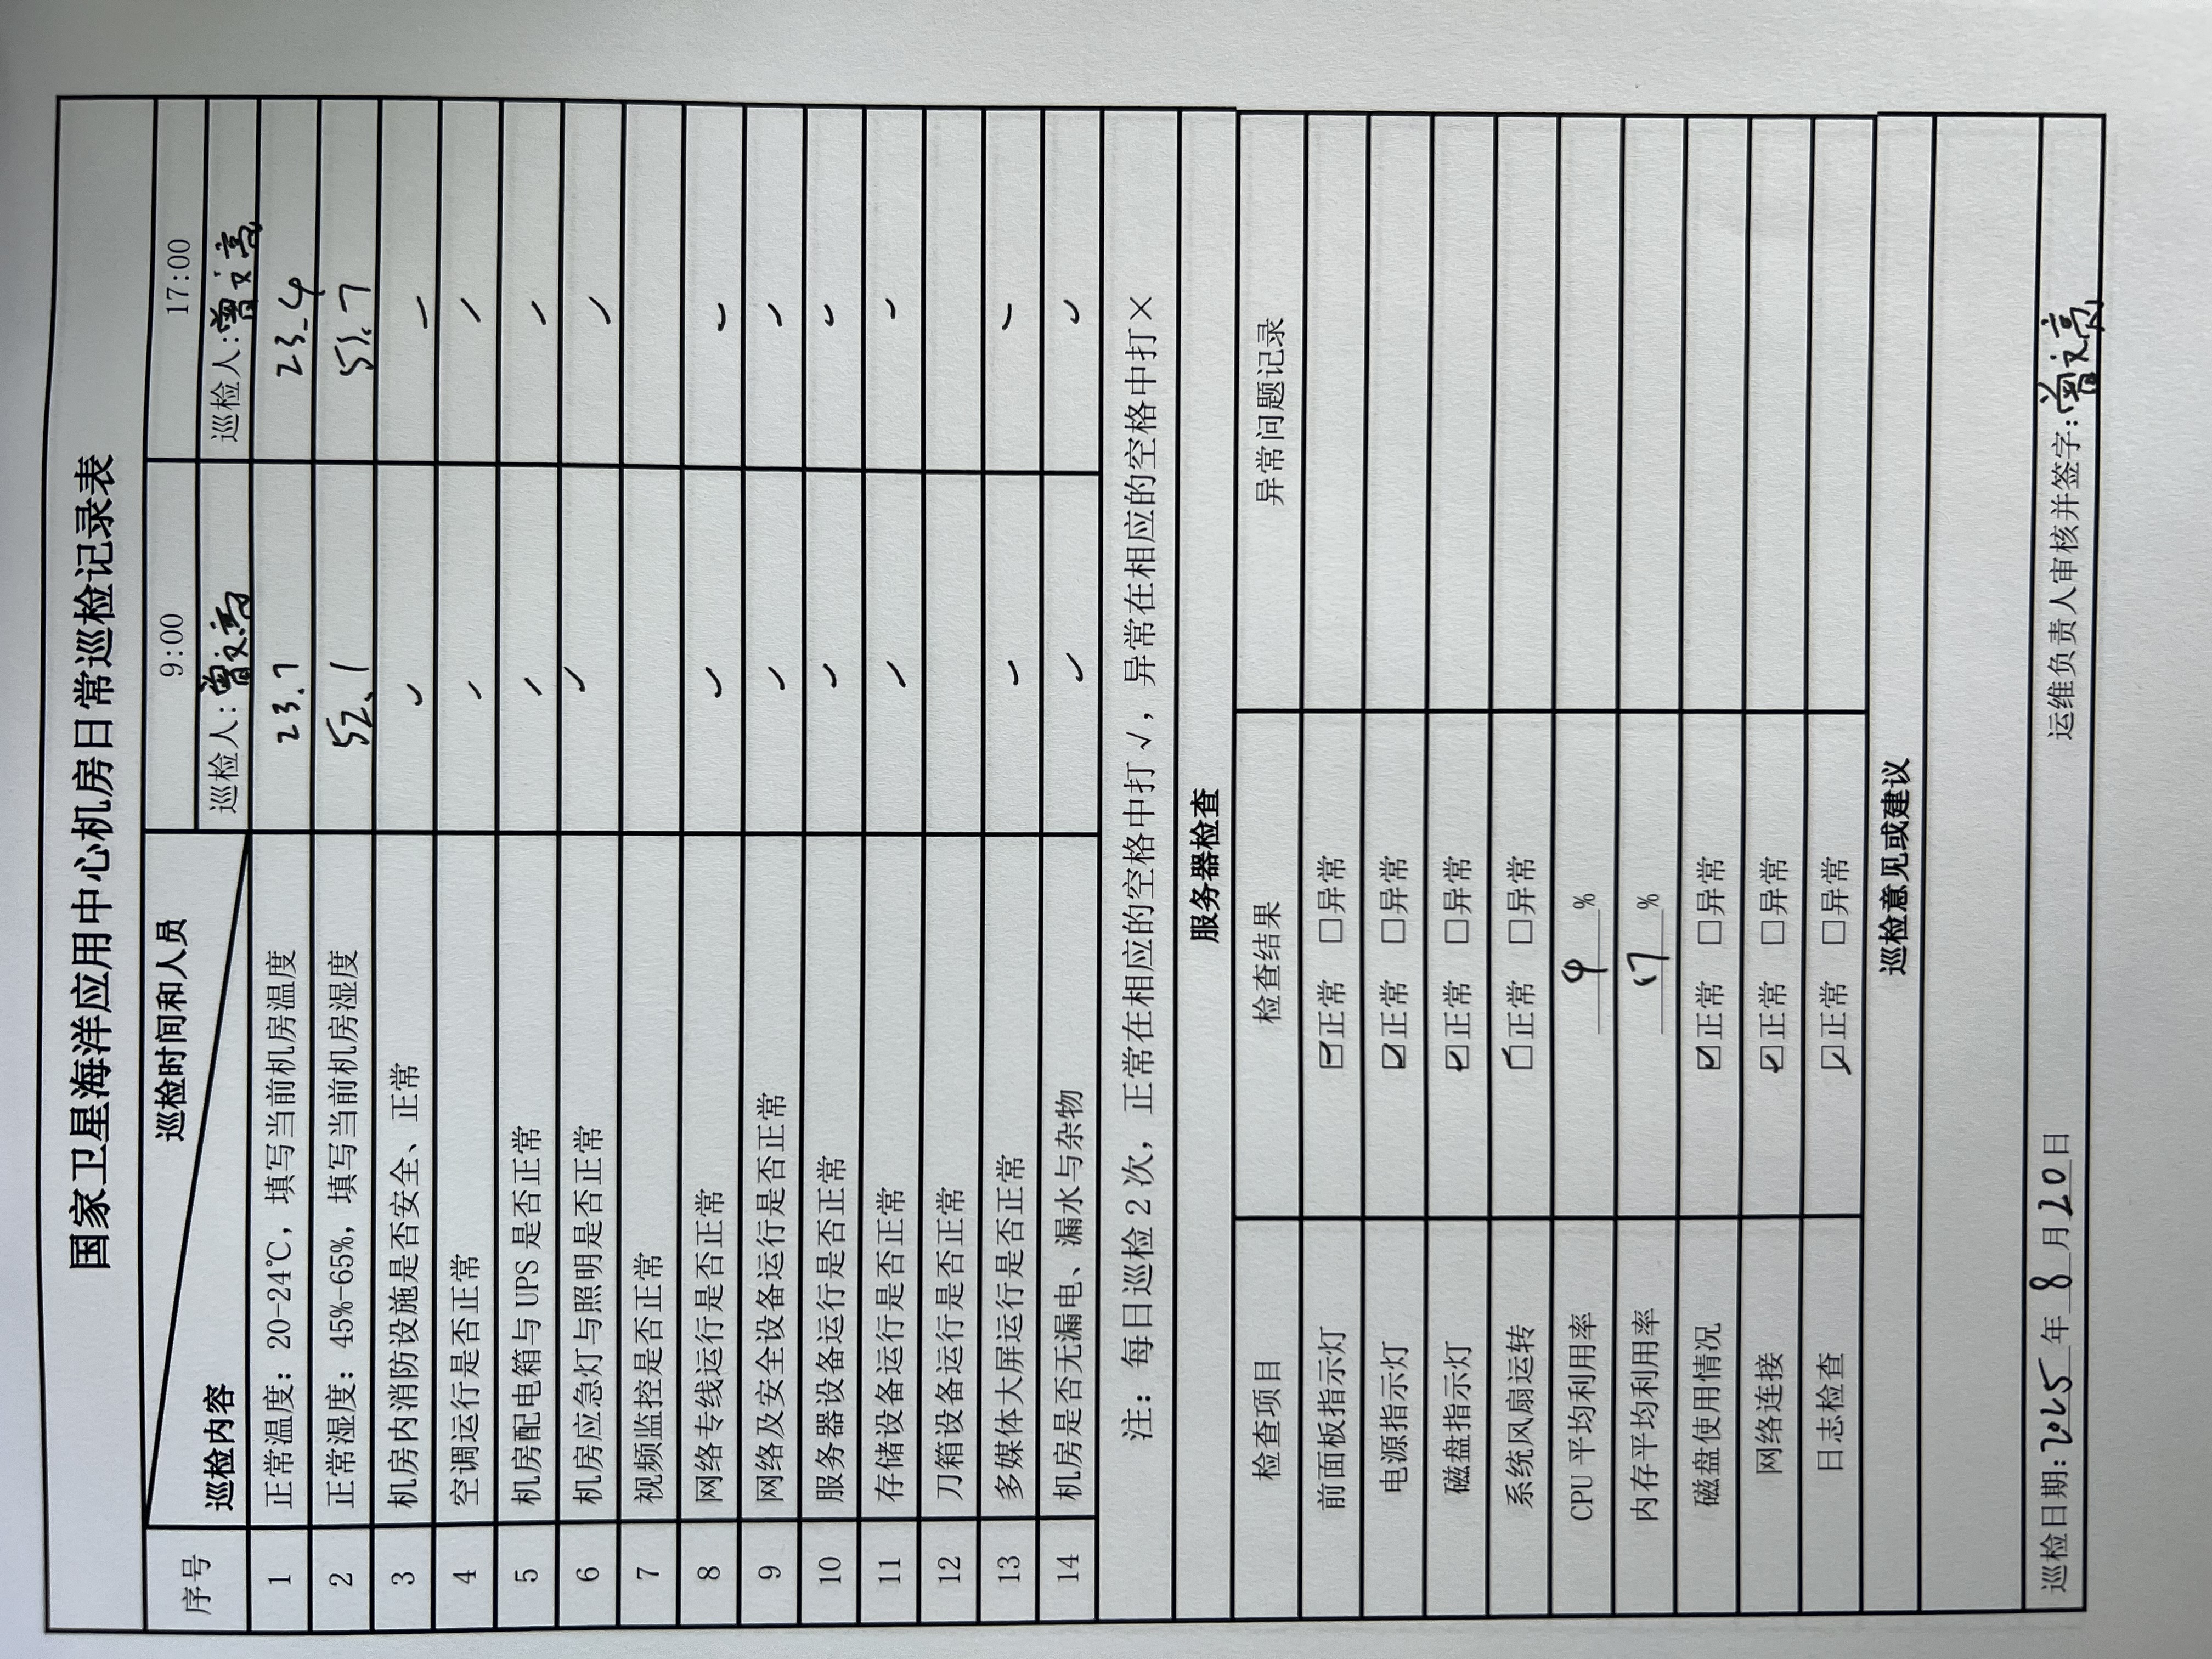 国家卫星海洋应用中心机房日常巡检记录表
序号 巡检内容 巡检时间和人员 9:00 17:00
巡检人:曾文亮 巡检人:曾文亮
1 正常温度：20-24℃，填写当前机房温度 23.7 23.4
2 正常湿度：45%-65%，填写当前机房湿度 52.1 51.7
3 机房内消防设施是否安全、正常 ✓ ✓
4 空调运行是否正常 ✓ ✓
5 机房配电箱与 UPS 是否正常 ✓ ✓
6 机房应急灯与照明是否正常 ✓ ✓
7 视频监控是否正常
8 网络专线运行是否正常 ✓ ✓
9 网络及安全设备运行是否正常 ✓ ✓
10 服务器设备运行是否正常 ✓ ✓
11 存储设备运行是否正常 ✓ ✓
12 刀箱设备运行是否正常
13 多媒体大屏运行是否正常 ✓ ✓
14 机房是否无漏电、漏水与杂物 ✓ ✓
注：每日巡检 2 次，正常在相应的空格中打 √，异常在相应的空格中打 ×
服务器检查
检查项目 检查结果 异常问题记录
前面板指示灯 ☑正常 □异常
电源指示灯 ☑正常 □异常
磁盘指示灯 ☑正常 □异常
系统风扇运转 ☑正常 □异常
CPU 平均利用率 4 %
内存平均利用率 17 %
磁盘使用情况 ☑正常 □异常
网络连接 ☑正常 □异常
日志检查 ☑正常 □异常
巡检意见或建议
巡检日期: 2025 年 8 月 20 日 运维负责人审核并签字: 曾文亮